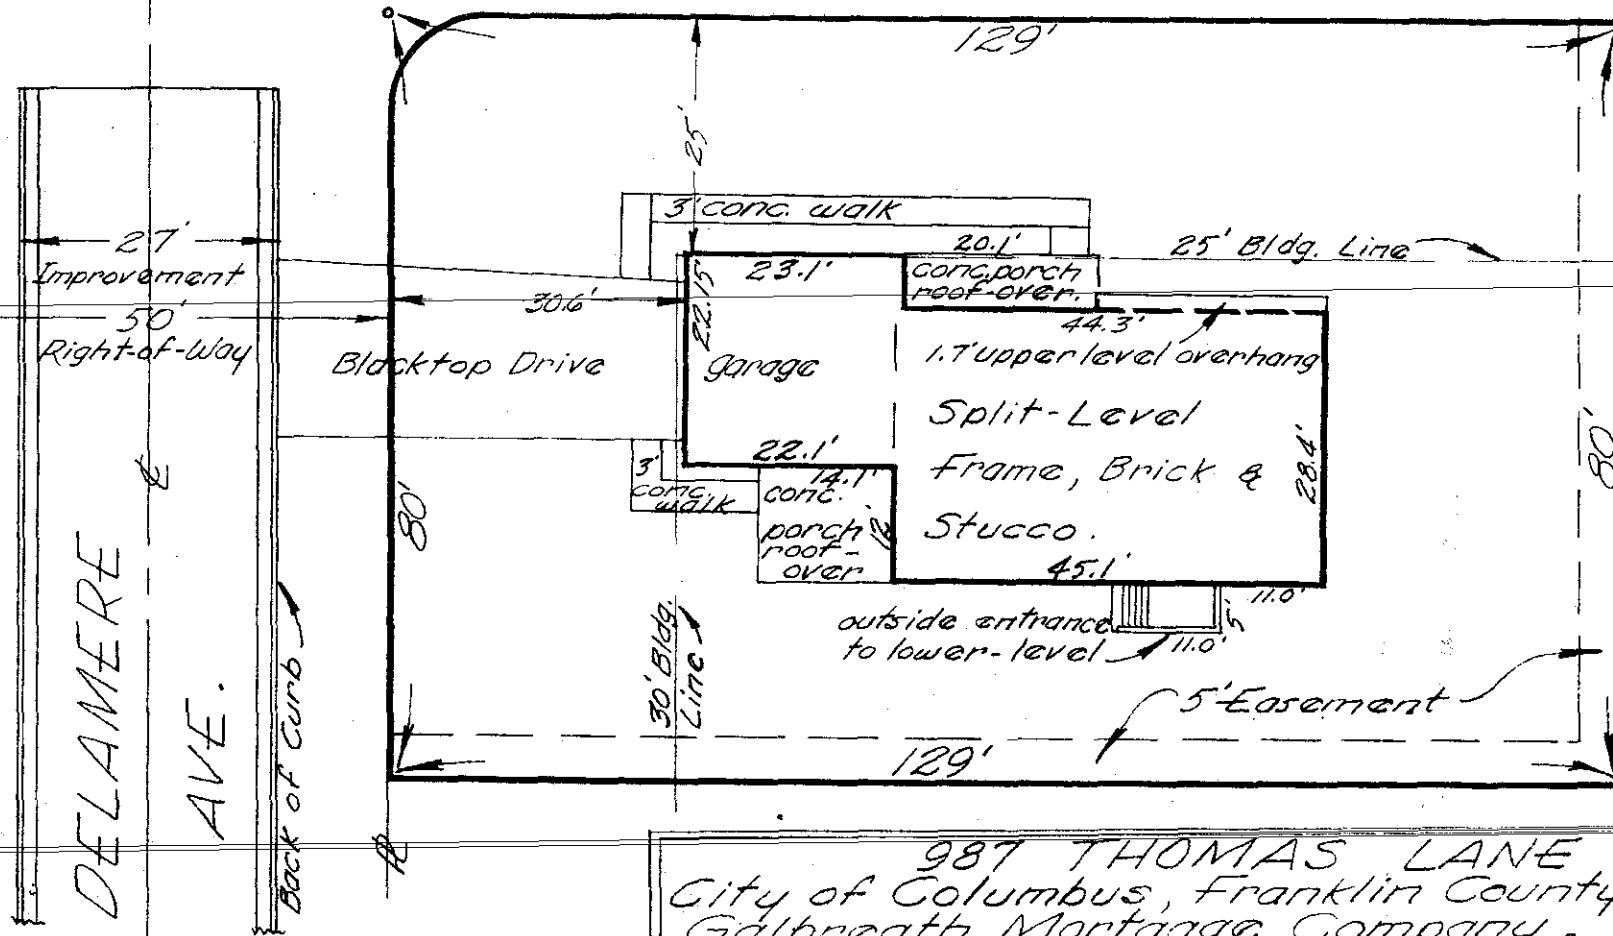 129'
25'
3' conc. walk
27'
Improvement
50'
Right-of-Way
20.1'
25' Bldg. Line
23.1'
conc. porch
roof-over.
30.6'
22.15'
44.3'
Blacktop Drive
garage
1.7' upper level overhang
Split-Level
Frame, Brick &
Stucco.
28.4'
80'
22.1'
14.1'
3'
conc.
walk
conc.
porch
roof-
over
12'
80'
45.1'
11.0'
outside entrance
to lower-level
11.0'
5'
30' Bldg.
Line
5' Easement
129'
DELAMERE
AVE.
Back of Curb
987 THOMAS LANE
City of Columbus, Franklin County
Galbreath Mortgage Company.